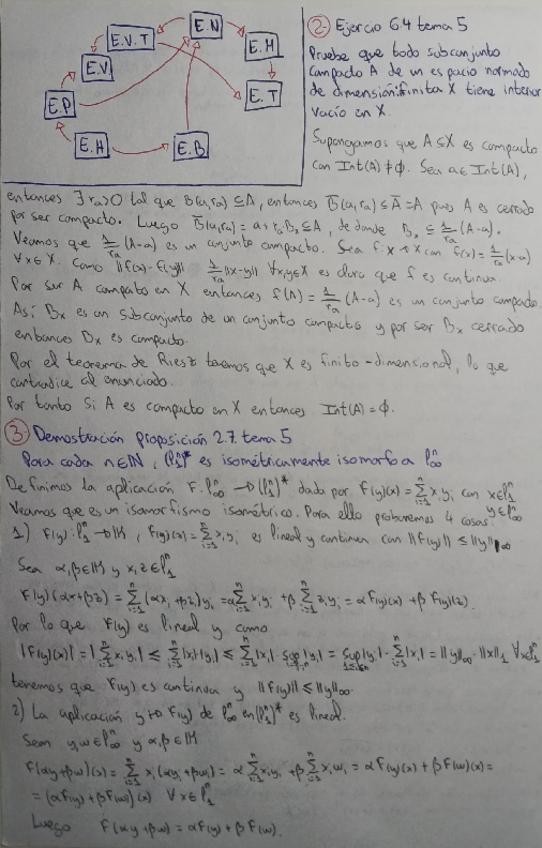 E.N
E.V.T
E.M
E.V
E.T
E.P
E.H
E.B
2- Ejercio 6.4 tema 5
Pruebe que todo subconjunto
compacto A de un espacio normado
de dimensión finita X tiene interior
vacío en X.
Supongamos que A⊆X es compacto
con Int(A)≠∅. Sea a∈Int(A),
entonces ∃ra>0 tal que B(a,ra)⊆A, entonces B̄(a,ra)⊆Ā=A pues A es cerrado
por ser compacto. Luego B̄(a,ra)=a+ra·Bx⊆A, de donde Bx⊆1/ra(A-a).
Veamos que 1/ra(A-a) es un conjunto compacto. Sea f:X→X con f(x)=1/ra(x-a)
∀x∈X. Como ||f(x)-f(y)|| 1/ra||x-y|| ∀x,y∈X es claro que f es continua.
Por ser A compacto en X entonces f(A)=1/ra(A-a) es un conjunto compacto.
Así Bx es un subconjunto de un conjunto compacto y por ser Bx cerrado
entonces Bx es compacto.
Por el teorema de Riesz tenemos que X es finito-dimensional, lo que
contradice al enunciado.
Por tanto si A es compacto en X entonces Int(A)=∅.
3- Demostración proposición 2.7. tema 5
Para cada n∈ℕ, (l₁ⁿ)* es isométricamente isomorfo a l∞ⁿ
Definimos la aplicación F: l∞ⁿ→(l₁ⁿ)* dada por F(y)(x)=Σᵢ₌₁ⁿ xᵢyᵢ con x∈l₁ⁿ
y∈l∞ⁿ
Veamos que es un isomorfismo isométrico. Para ello probaremos 4 cosas:
1) F(y): l₁ⁿ→𝕂, F(y)(x)=Σᵢ₌₁ⁿ xᵢyᵢ es lineal y continua con ||F(y)||≤||y||∞
Sea α,β∈𝕂 y x,z∈l₁ⁿ
F(y)(αx+βz)=Σᵢ₌₁ⁿ(αxᵢ+βzᵢ)yᵢ=αΣᵢ₌₁ⁿ xᵢyᵢ+βΣᵢ₌₁ⁿ zᵢyᵢ=αF(y)(x)+βF(y)(z).
Por lo que F(y) es lineal y como
|F(y)(x)|=|Σᵢ₌₁ⁿ xᵢyᵢ|≤Σᵢ₌₁ⁿ|xᵢ||yᵢ|≤Σᵢ₌₁ⁿ|xᵢ|·sup|yᵢ|=sup|yᵢ|·Σᵢ₌₁ⁿ|xᵢ|=||y||∞·||x||₁ ∀x∈l₁ⁿ
tenemos que F(y) es continua y ||F(y)||≤||y||∞.
2) La aplicación y→F(y) de l∞ⁿ en (l₁ⁿ)* es lineal.
Sean y,w∈l∞ⁿ y α,β∈𝕂
F(αy+βw)(x)=Σᵢ₌₁ⁿ xᵢ(αyᵢ+βwᵢ)=αΣᵢ₌₁ⁿ xᵢyᵢ+βΣᵢ₌₁ⁿ xᵢwᵢ=αF(y)(x)+βF(w)(x)=
=(αF(y)+βF(w))(x) ∀x∈l₁ⁿ
Luego F(αy+βw)=αF(y)+βF(w).